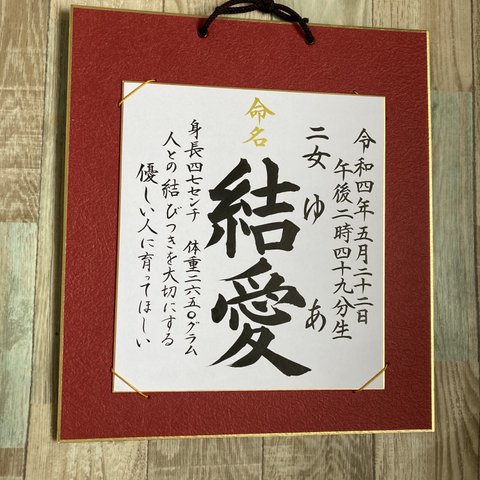 令和四年五月二十二日
午後二時四十九分生
二女 ゆあ
命名
結愛
身長四七センチ 体重二六五〇グラム
人との結びつきを大切にする
優しい人に育ってほしい